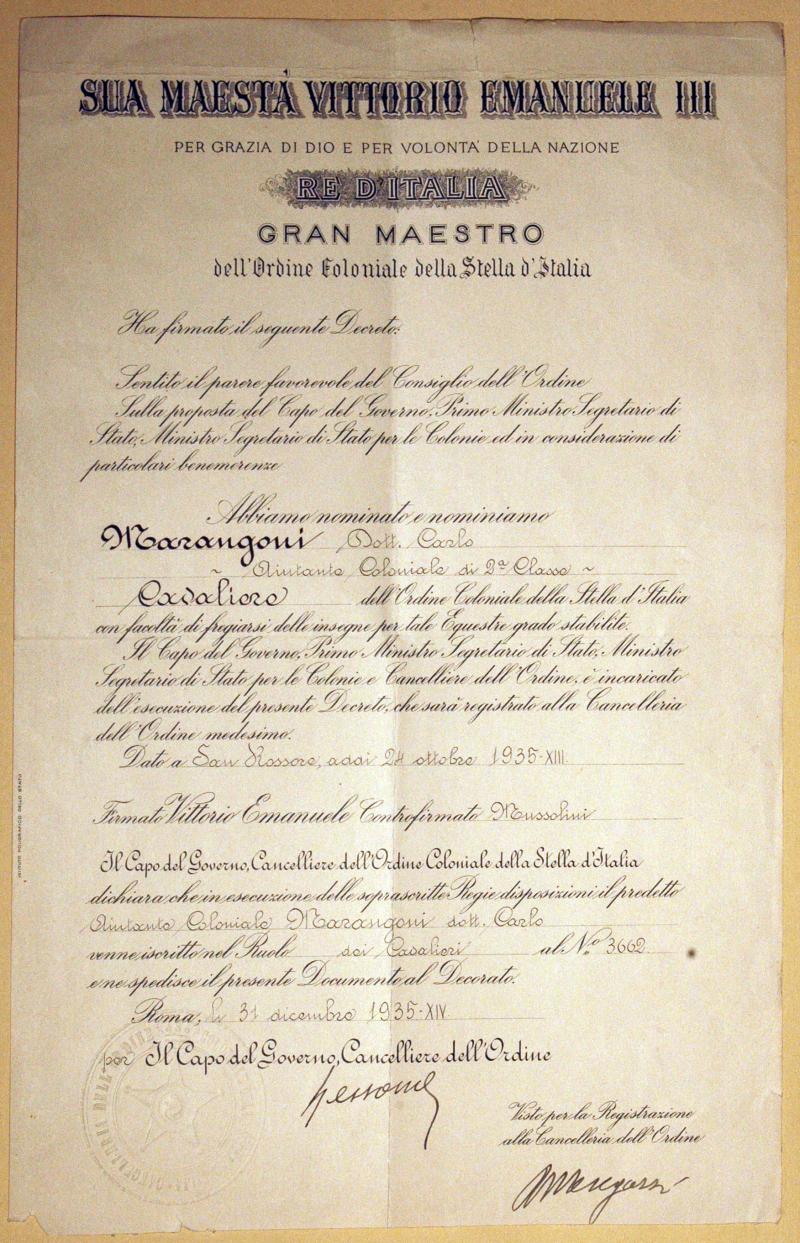 SUA MAESTÀ VITTORIO EMANUELE III
PER GRAZIA DI DIO E PER VOLONTA' DELLA NAZIONE
RE D'ITALIA
GRAN MAESTRO
dell'Ordine Coloniale della Stella d'Italia
Ha firmato il seguente Decreto:
Sentito il parere favorevole del Consiglio dell'Ordine
Sulla proposta del Capo del Governo, Primo Ministro Segretario di
Stato, Ministro Segretario di Stato per le Colonie ed in considerazione di
particolari benemerenze
Abbiamo nominato e nominiamo
Marangoni Dott. Carlo
~ Aiutante Coloniale di 2ª Classe ~
Cavaliere dell'Ordine Coloniale della Stella d'Italia
con facoltà di fregiarsi delle insegne per tale Equestre grado stabilite.
Il Capo del Governo, Primo Ministro Segretario di Stato, Ministro
Segretario di Stato per le Colonie e Cancelliere dell'Ordine, è incaricato
dell'esecuzione del presente Decreto, che sarà registrato alla Cancelleria
dell'Ordine medesimo.
Dato a San Rossore, addì 24 ottobre 1935-XIII.
Firmato Vittorio Emanuele Controfirmato Mussolini
Il Capo del Governo, Cancelliere dell'Ordine Coloniale della Stella d'Italia
dichiara che in esecuzione delle soprascritte Regie disposizioni il predetto
Aiutante Coloniale Marangoni dott. Carlo
venne iscritto nel Ruolo dei Cavalieri al N.º 3662.
e ne spedisce il presente Documento al Decorato.
Roma, li 31 dicembre 1935-XIV.
per Il Capo del Governo, Cancelliere dell'Ordine
Visto per la Registrazione
alla Cancelleria dell'Ordine
ISTITUTO POLIGRAFICO DELLO STATO